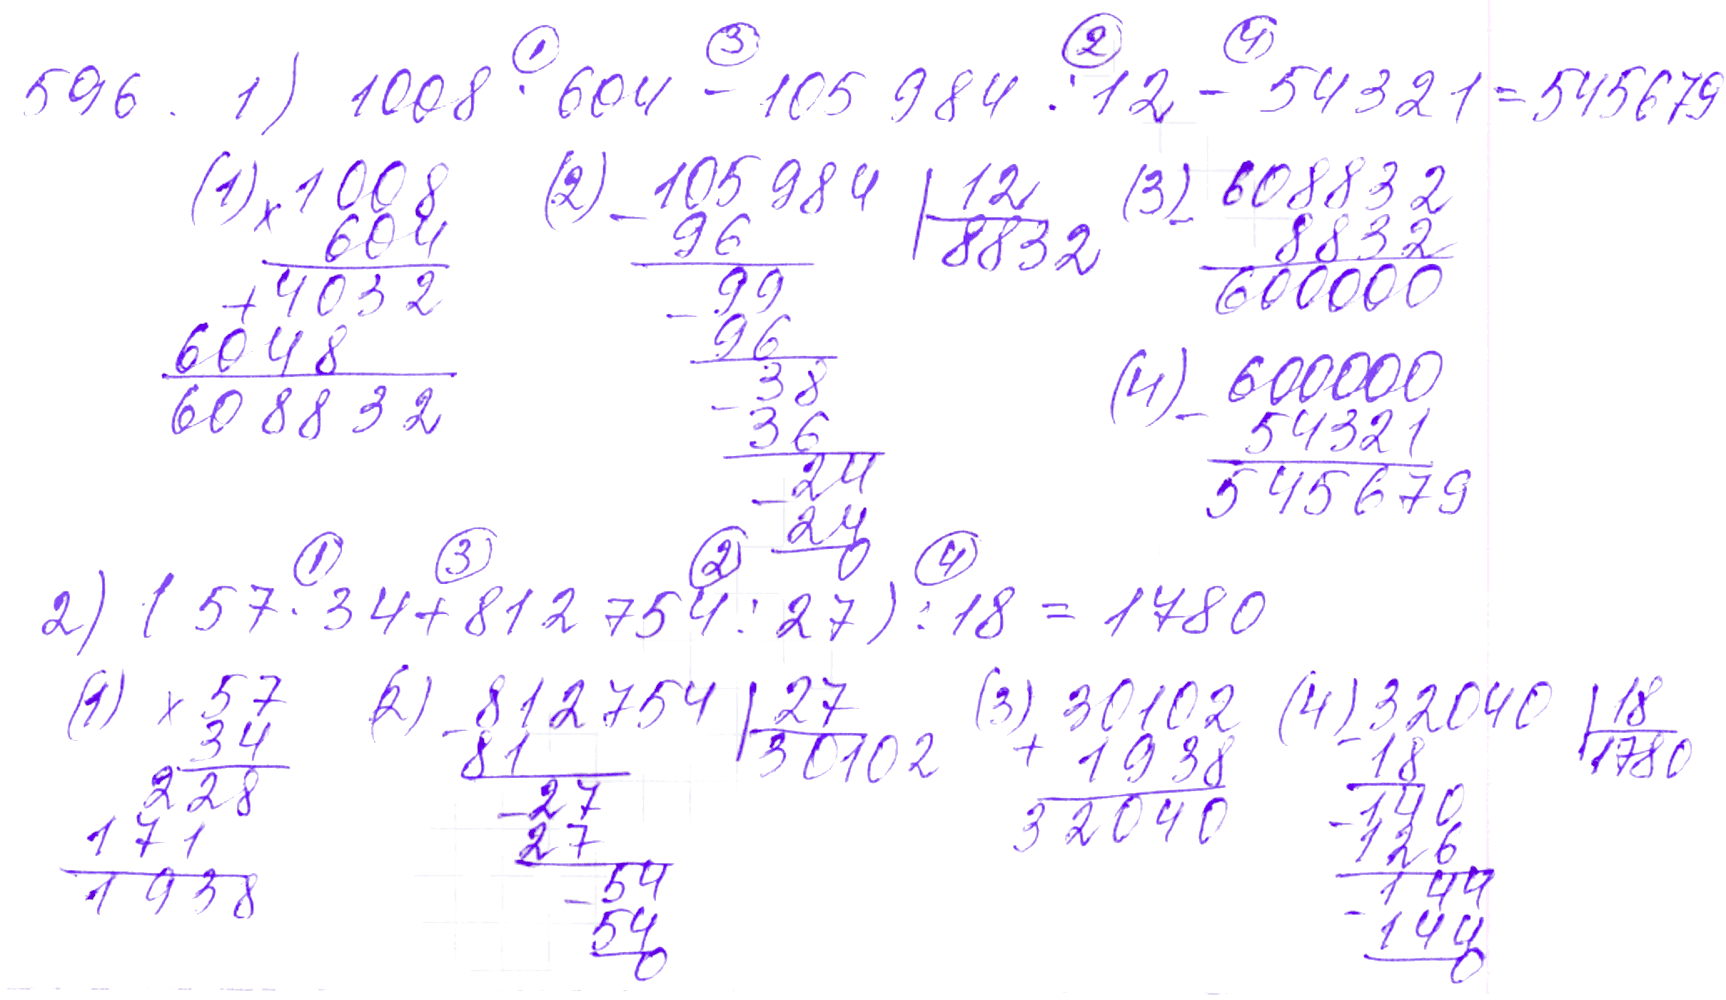 ① ③ ② ④
596. 1) 1008 · 604 - 105 984 : 12 - 54321 = 545679
(1) × 1008 (2) - 105 984 | 12 (3) - 608832
604 96 8832 8832
+ 4032 - 99 600000
6048 96
608832 - 38 (4) - 600000
36 54321
- 24 545679
24
0
① ③ ② ④
2) (57 · 34 + 812 754 : 27) : 18 = 1780
(1) × 57 (2) - 812754 | 27 (3) 30102 (4) - 32040 | 18
34 81 30102 + 1938 18 1780
228 - 27 32040 - 140
171 27 126
1938 - 54 - 144
54 144
0 0